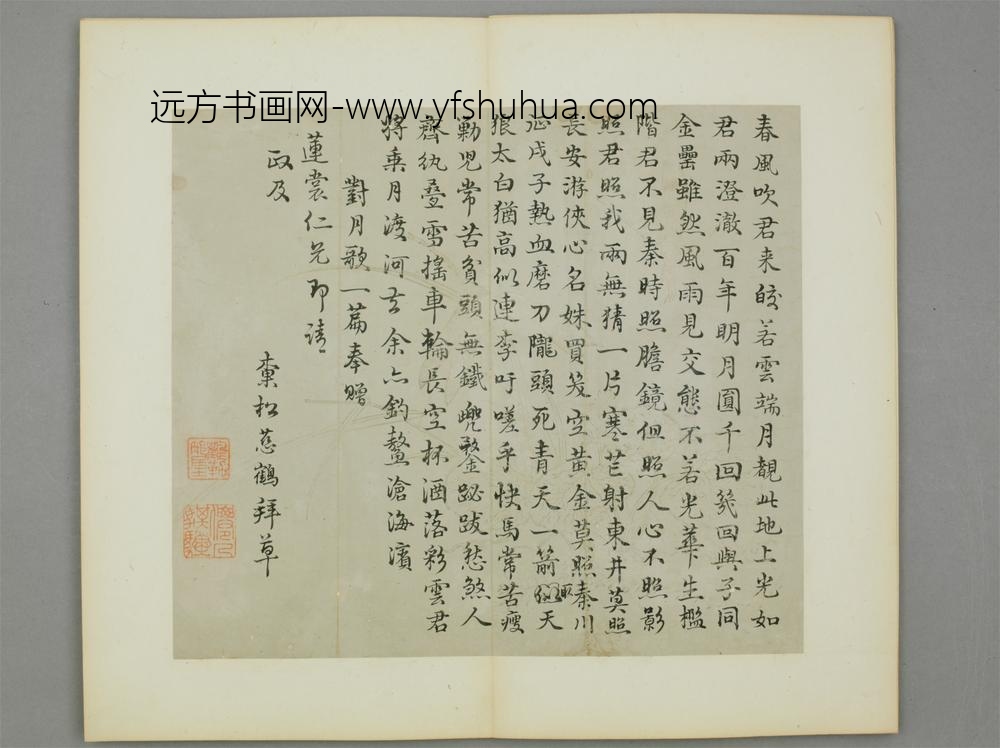 远方书画网-www.yfshuhua.com
春風吹君来皎若雲端月覩此地上光如
君兩澄澈百年明月圓千回幾回與子同
金罍雖然風雨見交態不若光華生檻
階君不見秦時照膽鏡但照人心不照影
照君照我兩無猜一片寒芒射東井莫照
長安游俠心名姝買笑空黄金莫照秦川
戍子熱血磨刀隴頭死青天一箭取天
狼太白猶高似連李吁嗟乎快馬常苦瘦
勦児常苦貧頭無鐵兜鍪跋愁煞人
齊紈疊雪搖車輪長空杯酒落彩雲君
將乗月渡河去余亦釣鼇滄海濱
對月歌一篇奉贈
蓮裳仁兄即請
政及
松慈鶴拜草